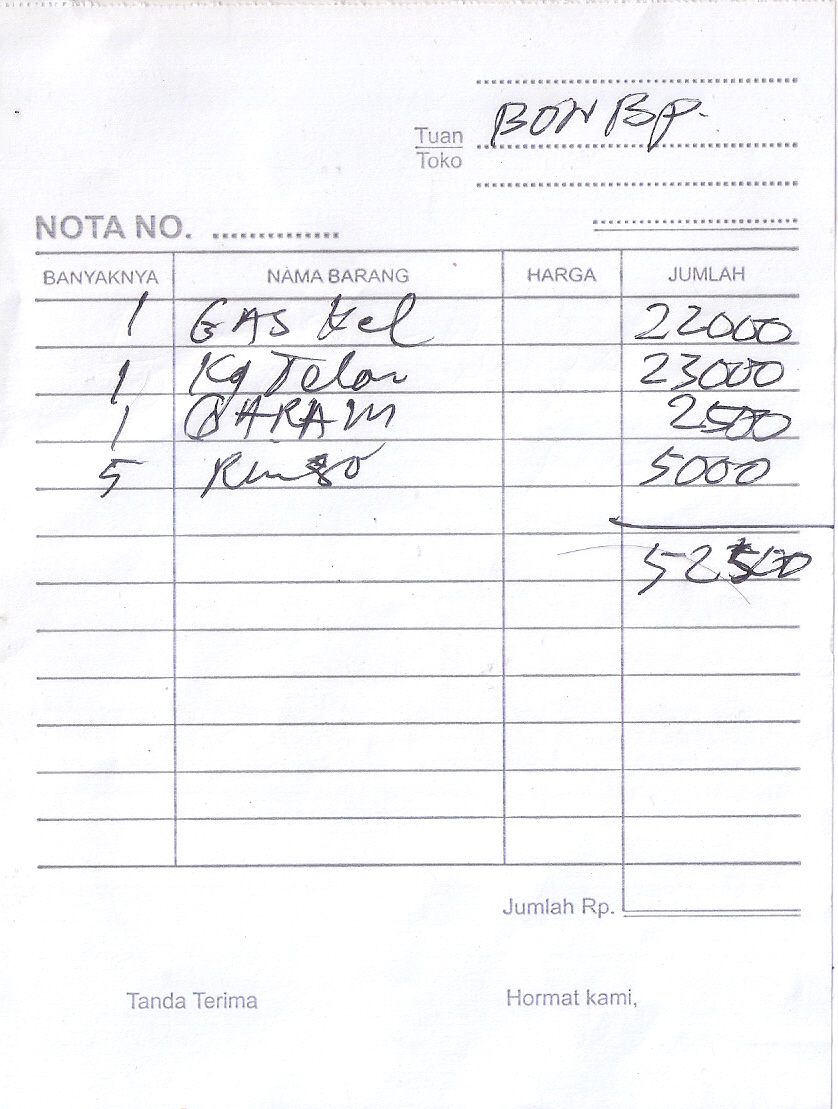 BON BP.
Tuan
Toko
NOTA NO. ..............
BANYAKNYA NAMA BARANG HARGA JUMLAH
1 GAS kel 22000
1 Kg Telor 23000
1 GARAM 2500
5 Rinso 5000
52500
Jumlah Rp.
Tanda Terima Hormat kami,